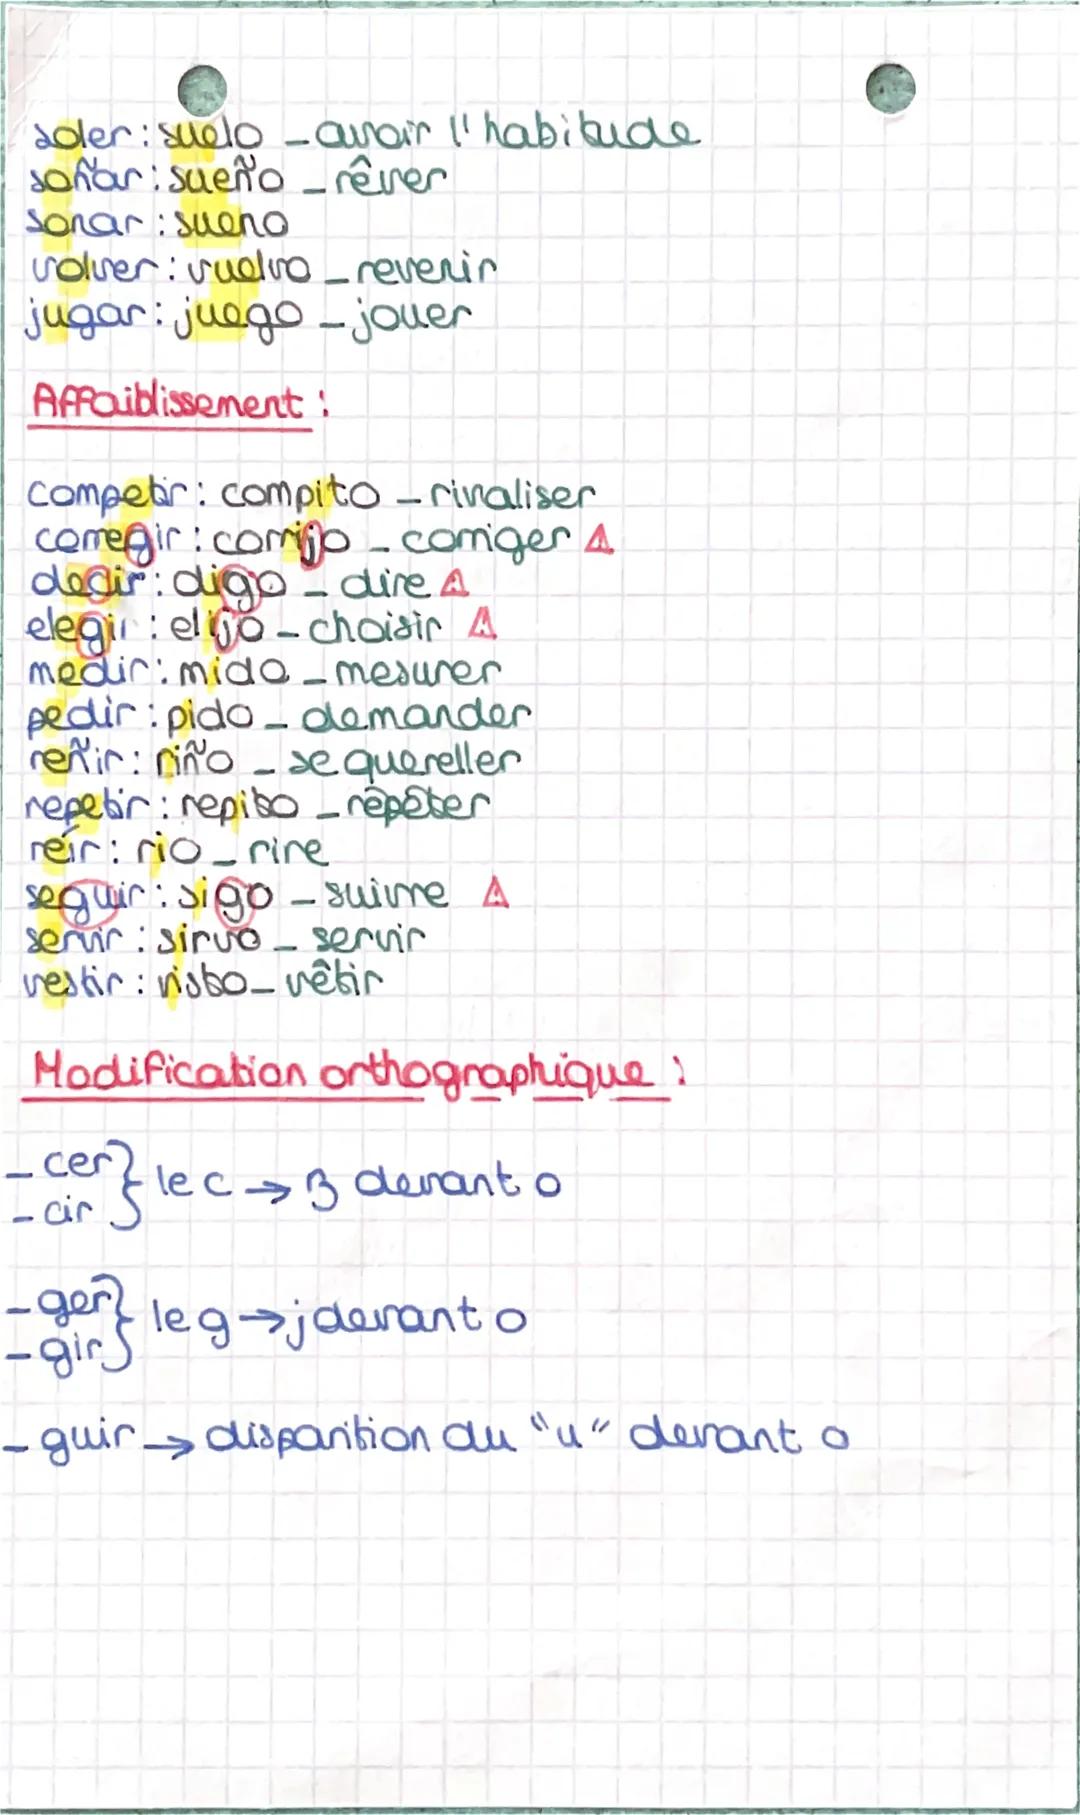 soler : suelo - avoir l'habitude
soñar : sueño - rêver
sonar : sueno
volver : vuelvo - revenir
jugar : juego - jouer
Affaiblissement :
competir : compito - rivaliser
corregir : corrijo - corriger ⚠
decir : digo - dire ⚠
elegir : elijo - choisir ⚠
medir : mido - mesurer
pedir : pido - demander
reñir : riño - se quereller
repetir : repito - répéter
reír : rio - rire
seguir : sigo - suivre ⚠
servir : sirvo - servir
vestir : visto - vêtir
Modification orthographique :
- cer
- cir } le c → z devant o
- ger
- gir } le g → j devant o
- guir → disparition du "u" devant o